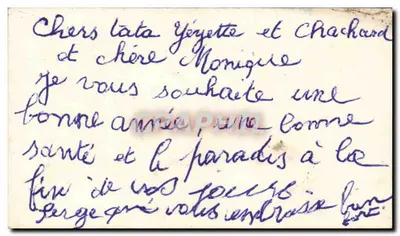 Chers tata Yéyette et Chachard
et chère Monique
je vous souhaite une
bonne année, une bonne
santé et le paradis à la
fin de vos jours
Serge qui vous embrasse bien
fort